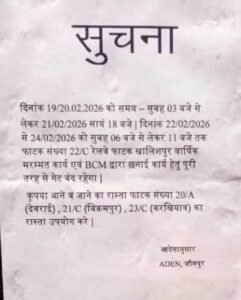 सुचना
दिनांक 19/20.02.2026 को समय – सुबह 03 बजे से
लेकर 21/02/2026 सायं 18 बजे | दिनांक 22/02/2026
से 24/02/2026 को सुबह 06 बजे से लेकर 11 बजे तक
फाटक संख्या 22/C रेलवे फाटक खालिशपुर वार्षिक
मरम्मत कार्य एवं BCM द्वारा छनाई कार्य हेतु पूरी
तरह से गेट बंद रहेगा |
कृपया आने व जाने का रास्ता फाटक संख्या 20/A
(देवराई) , 21/C (बिक्रमपुर) , 23/C (करखियाव) का
रास्ता उपयोग करे |
आदेसानुसार
ADEN, जौनपुर